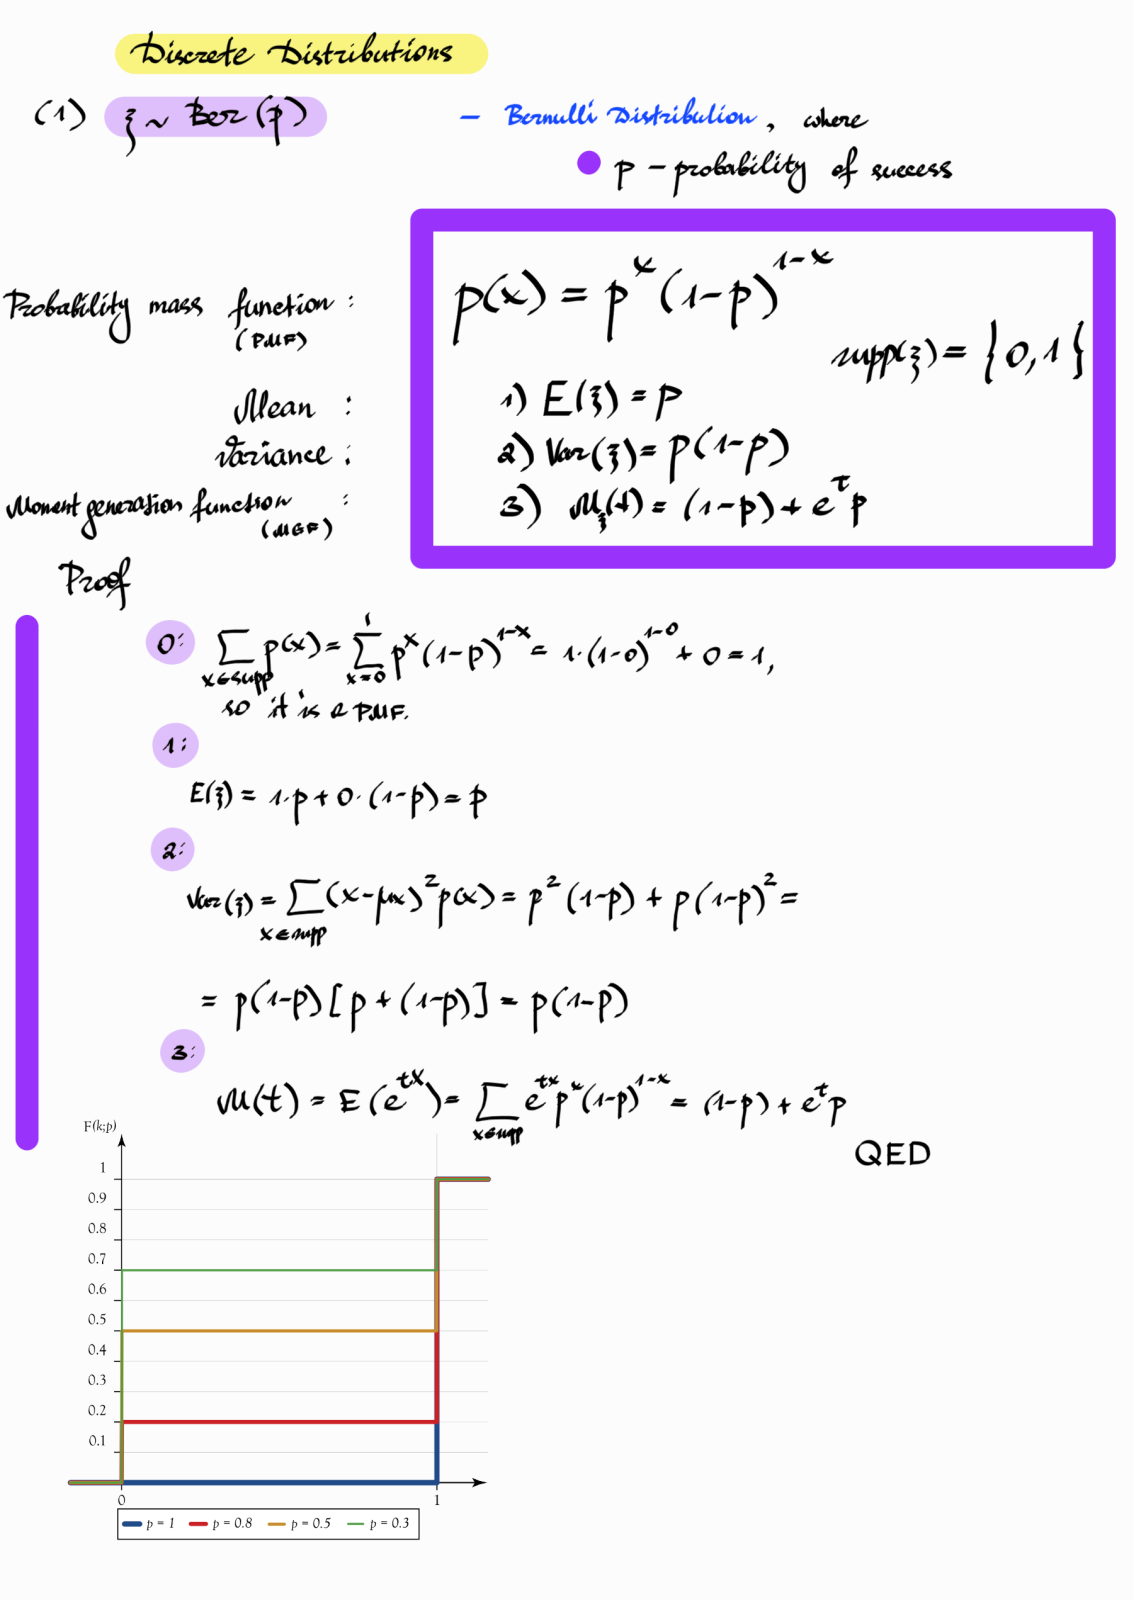 Discrete Distributions
(1) ξ ~ Ber(p) — Bernulli Distribution, where
p – probability of success
Probability mass function : p(x) = p^x (1-p)^{1-x}
(PMF)
supp(ξ) = {0,1}
Mean : 1) E(ξ) = p
Variance : 2) Var(ξ) = p(1-p)
Moment generation function : 3) M_ξ(t) = (1-p) + e^t p
(MGF)
Proof
0: ∑_{x∈supp} p(x) = ∑_{x=0}^{1} p^x (1-p)^{1-x} = 1·(1-0)^{1-0} + 0 = 1,
so it is a PMF.
1:
E(ξ) = 1·p + 0·(1-p) = p
2:
Var(ξ) = ∑_{x∈supp} (x-μx)^2 p(x) = p^2 (1-p) + p(1-p)^2 =
= p(1-p)[p + (1-p)] = p(1-p)
3:
M(t) = E(e^{tX}) = ∑_{x∈supp} e^{tx} p^x (1-p)^{1-x} = (1-p) + e^t p
QED
F(k;p)
1
0.9
0.8
0.7
0.6
0.5
0.4
0.3
0.2
0.1
0 1
p = 1 p = 0.8 p = 0.5 p = 0.3